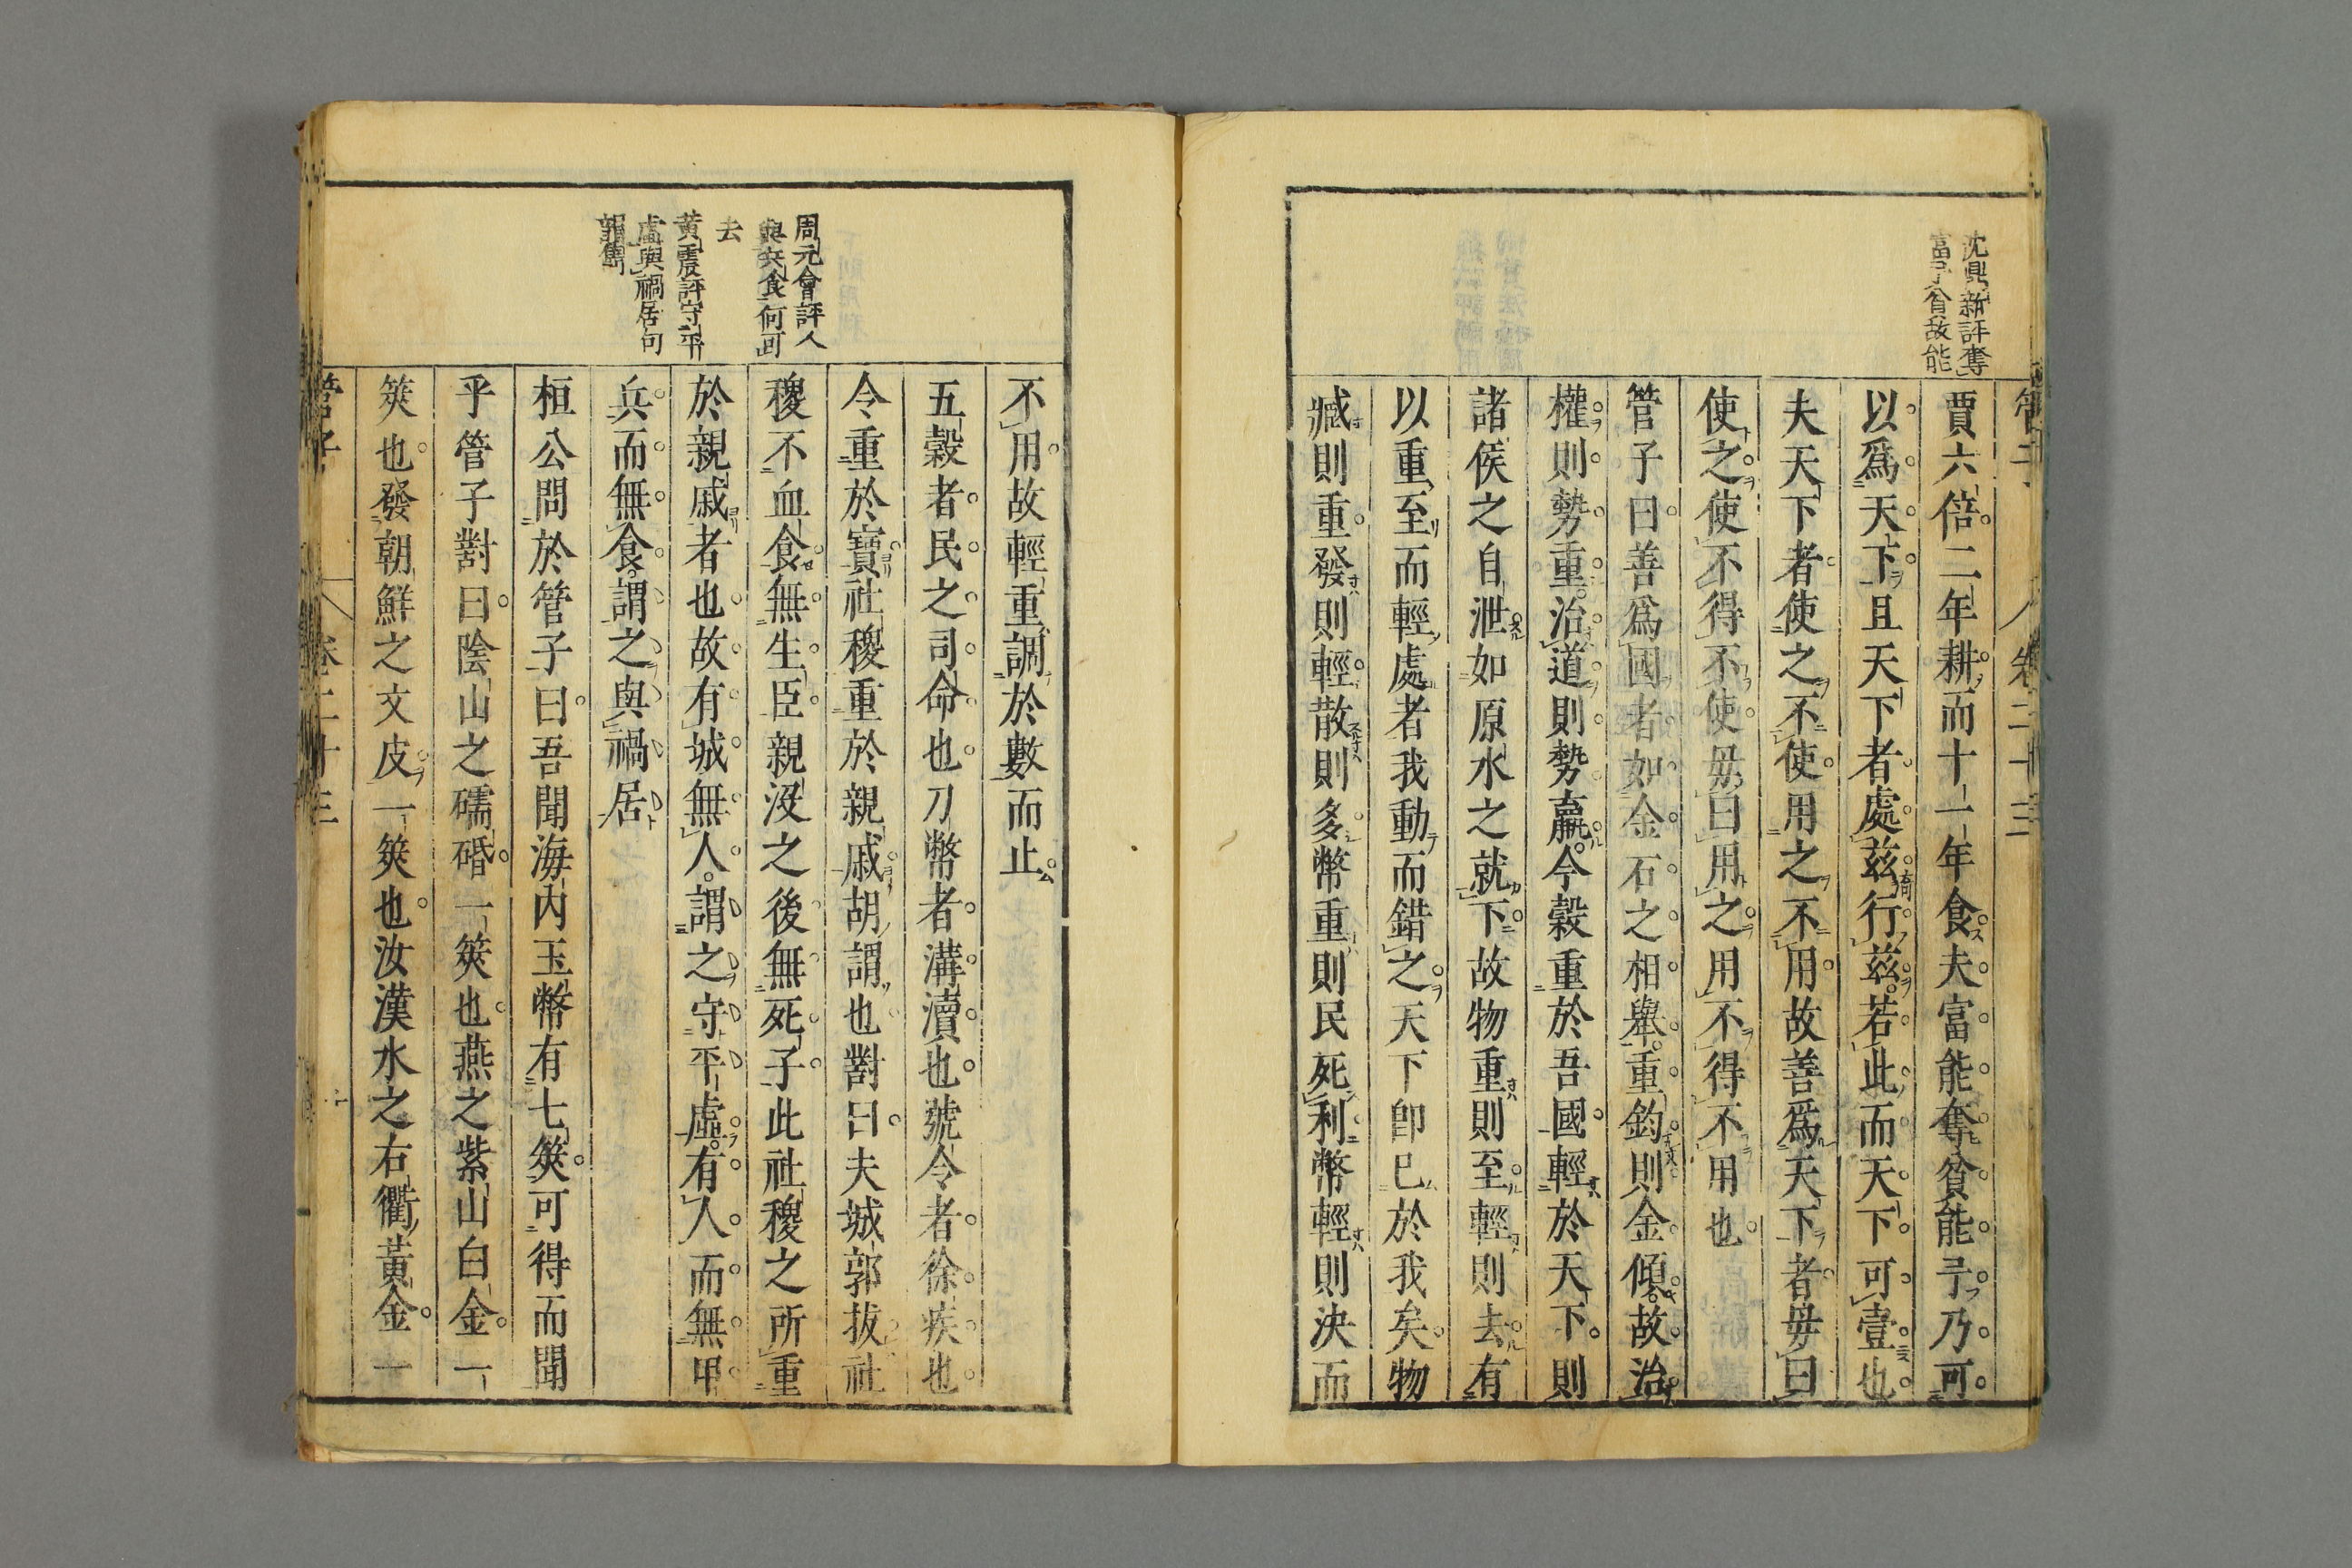 沈鼎新評奪
富予貧故能
賈六倍二年耕而十一年食夫富能奪貧能予乃可
以爲天下且天下者處茲行茲若此而天下可壹也
夫天下者使之不使用之不用故善爲天下者毋曰
使之使不得不使毋曰用之用不得不用也
管子曰善爲國者如金石之相舉重鈞則金傾故治
權則勢重治道則勢羸今穀重於吾國輕於天下則
諸侯之自泄如原水之就下故物重則至輕則去有
以重至而輕處者我動而錯之天下卽已於我矣物
臧則重發則輕散則多幣重則民死利幣輕則決而
周元會評人
與兵食何可
去
黃震評守平
虛與禍居句
不用故輕重調於數而止
五穀者民之司命也刀幣者溝瀆也號令者徐疾也
令重於寶社稷重於親戚胡謂也對曰夫城郭拔社
稷不血食無生臣親沒之後無死子此社稷之所重
於親戚者也故有城無人謂之守平虛有人而無甲
兵而無食謂之與禍居
桓公問於管子曰吾聞海內玉幣有七筴可得而聞
乎管子對曰陰山之礝䃉一筴也燕之紫山白金一
筴也發朝鮮之文皮一筴也汝漢水之右衢黃金一
管子 卷二十三